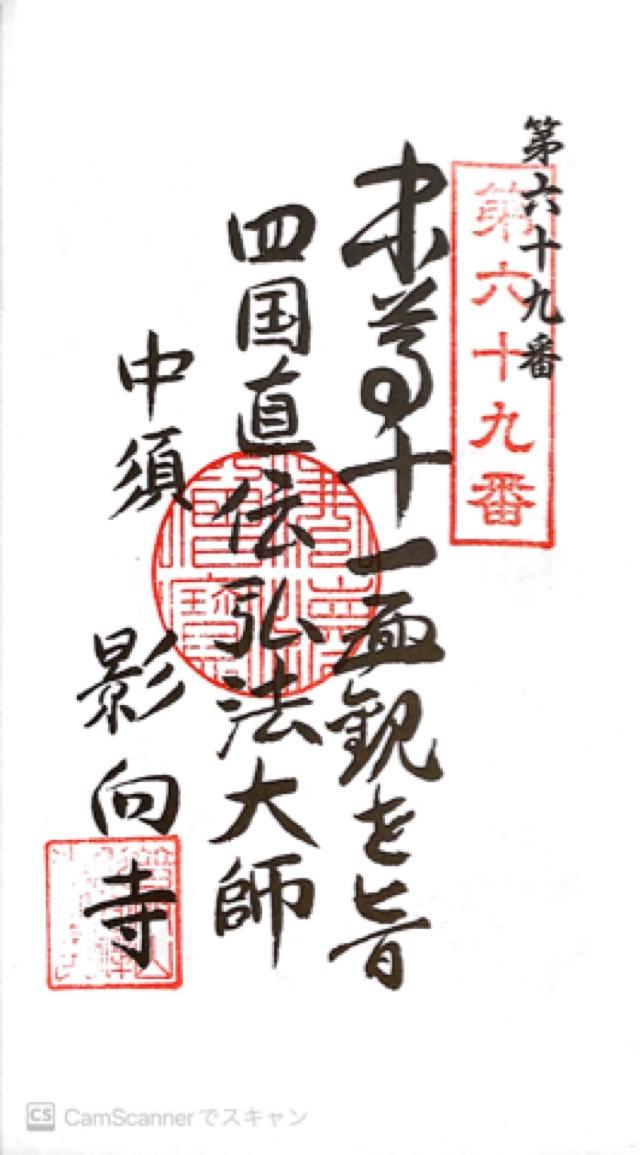 第六十九番
第六十九番
本尊十一面観世音
四国直伝弘法大師
中須
影向寺
CS CamScannerでスキャン